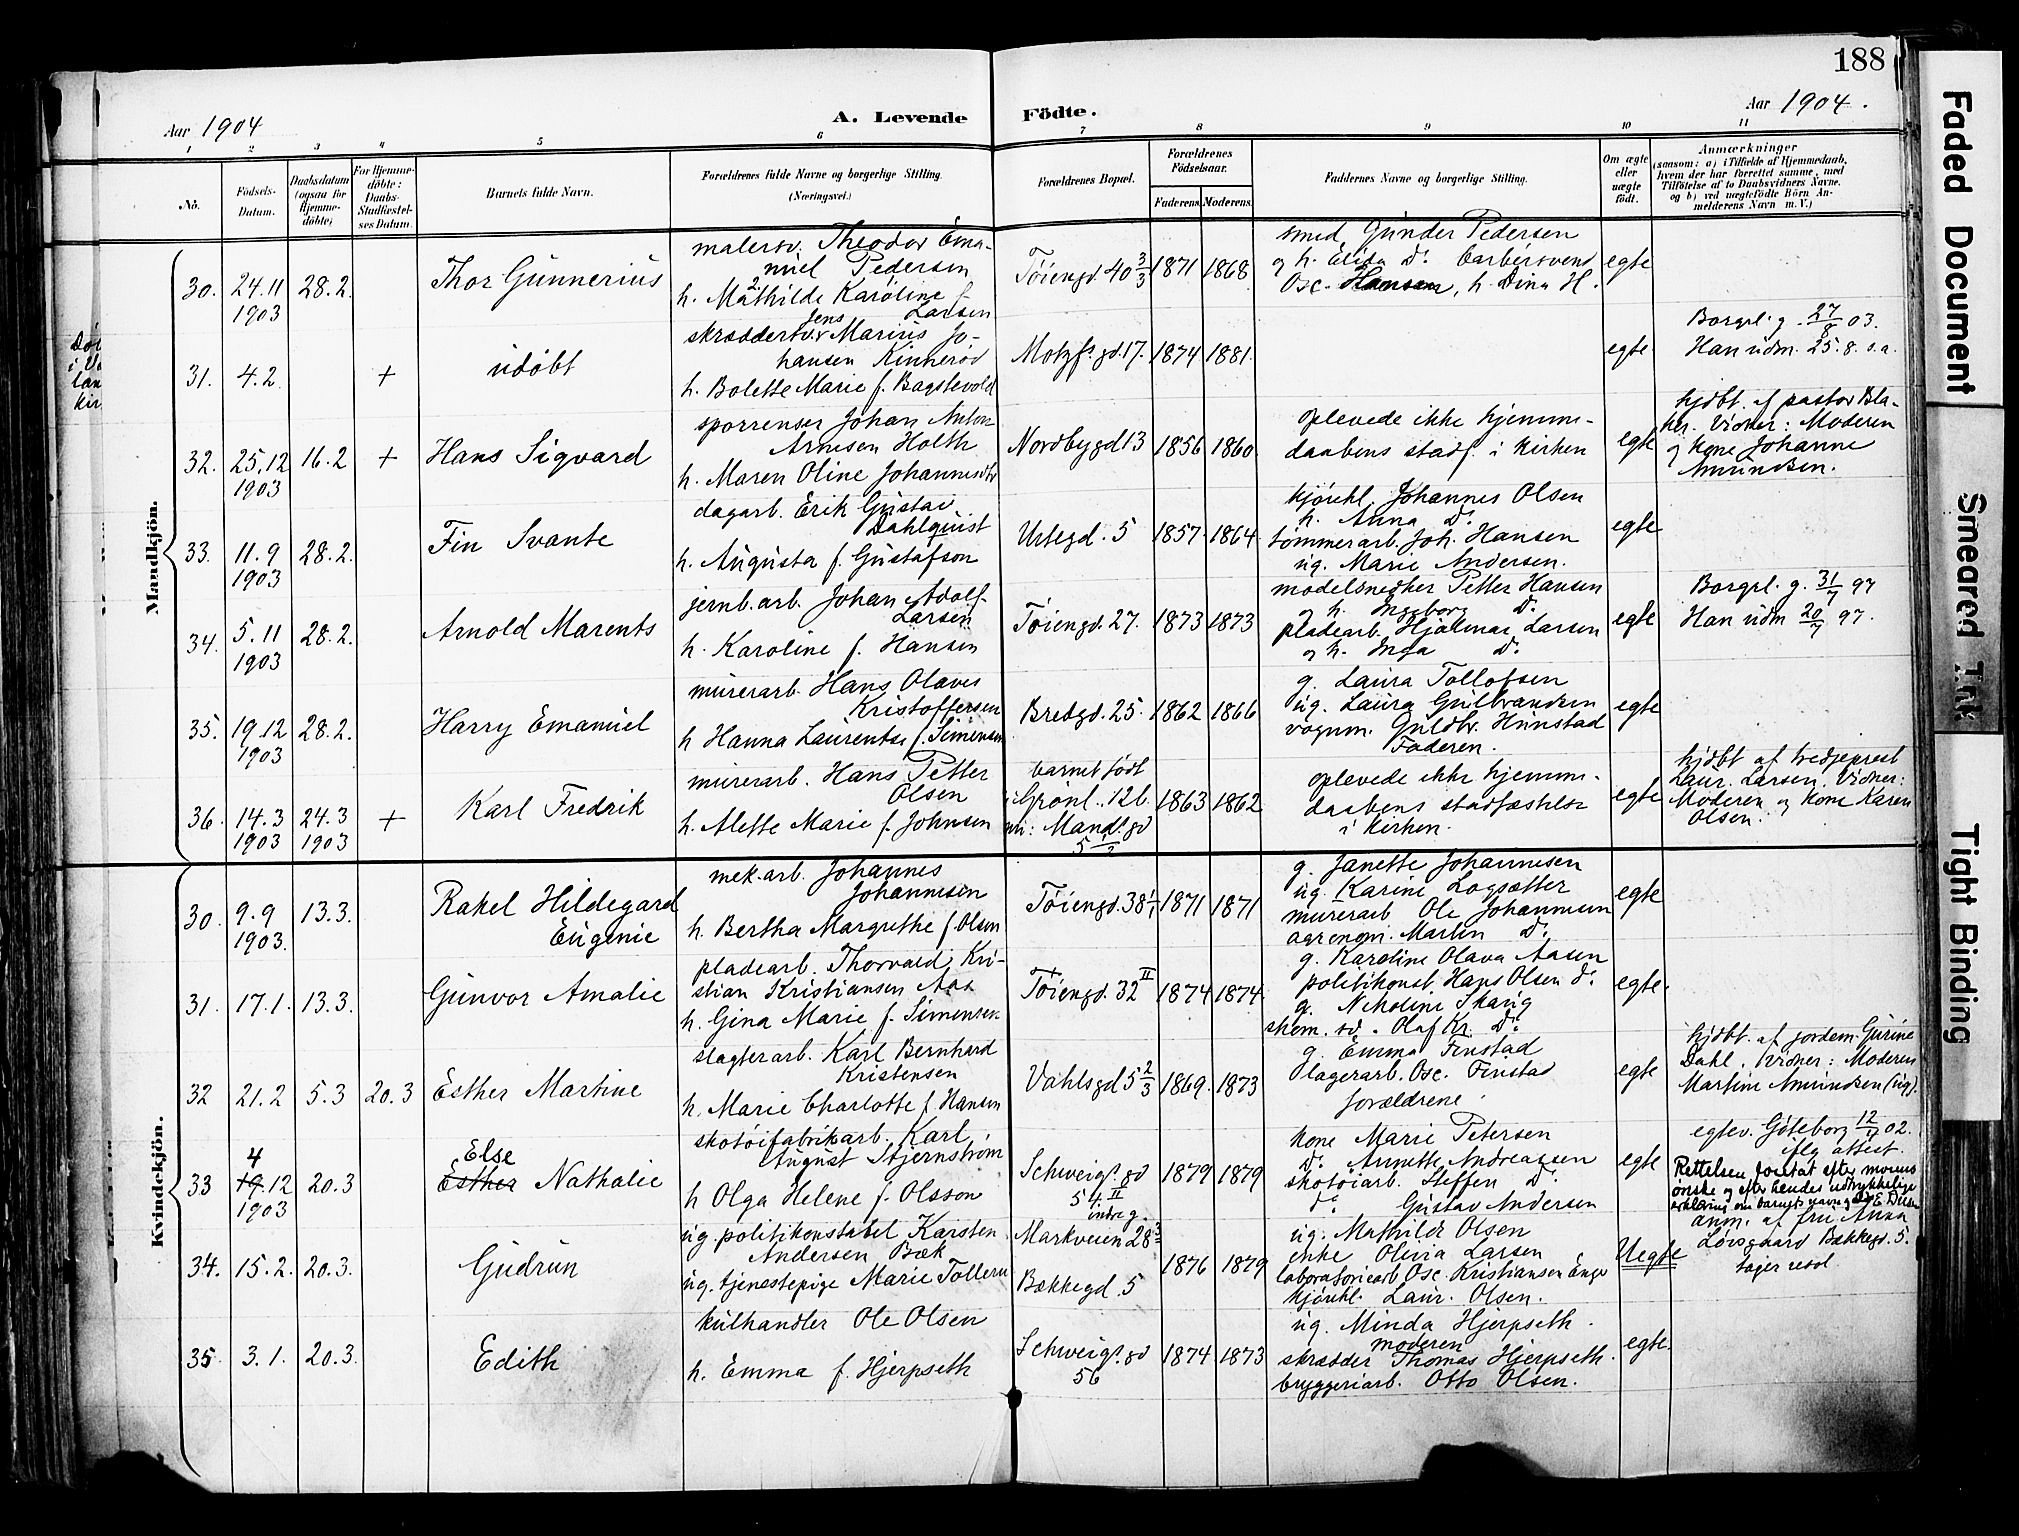 188
Aar 1904
A. Levende Födte.
Aar 1904.
1 2 3 4 5 6 7 8 9 10 11
No.
Födsels-
Datum.
Daabsdatum
(ogsaa for
Hjemme-
döbte)
For Hjemme-
döbte:
Daabs-
Stadfæstel-
ses Datum.
Barnets fulde Navn.
Forældrenes fulde Navne og borgerlige Stilling.
(Næringsvei.)
Forældrenes Bopæl.
Forældrenes
Födselsaar.
Faderens.
Moderens.
Faddernes Navne og borgerlige Stilling.
Om ægte
eller
uægte
födt.
Anmærkninger
(saasom: a) i Tilfælde af Hjemmedaab,
hvem der har forrettet samme, med
Tilföielse af to Daabsvidners Navne,
og b) ved uægtefödte Börn An-
melderens Navn m. V.)
Mandkjön.
30.
24.11
1903
28.2.
Thor Gunnerius
malersv. Theodor Ema-
nuel Pedersen
h. Mathilde Karoline f.
Larsen
Töiengd. 40 3/3
1871
1868
smed Gunder Pedersen
og h. Elida do. barbersvend
Osc. Hansen, h. Dina H.
egte
31.
4.2.
+
udöbt
skræddersv. Jens Marius Jo-
hansen Kinneröd
h. Bolette Marie f. Bagstevold
Motzfs. gd. 17.
1874
1881.
egte
Borgrl. g. 27/8 03.
Han udm. 25.8. s.a.
32.
25.12
1903
16.2
+
Hans Sigvard
sporrenser Johan Anton
Arnesen Holth
h. Maren Oline Johannesdtr
Nordbygd 13
1856
1860
oplevede ikke hjemme-
daabens stadf. i kirken
egte
hjdbt. af pastor Bla-
ker. Vidner: Moderen
og kone Johanne
Amundsen.
33.
11.9
1903
28.2.
Fin Svante
dagarb. Erik Gustav
Dahlquist
h. Augusta f. Gustafson
Urtegd. 5
1857.
1864.
kjörekl. Johannes Olsen
h. Anna do.
tömmerarb. Joh. Hansen
ug. Marie Andersen.
egte
34.
5.11
1903
28.2.
Arnold Marents
jernb.arb. Johan Adolf
Larsen
h. Karoline f. Hansen
Töiengd. 27.
1873
1873
modelsnedker Petter Hansen
og h. Ingeborg do.
pladearb. Hjalmar Larsen
og h. Inga do.
egte
Borgrl. g. 31/7 97
Han udm 20/7 97.
35.
19.12
1903
28.2.
Harry Emanuel
murerarb. Hans Olaves
Kristoffersen
h Hanna Laurentse f. Simensen
Bredgd. 25.
1862
1866
g. Laura Tollofsen
ug. Laura Gulbrandsen
vognm. Guldbr. Hunstad
Faderen.
egte
36.
14.3
1903
24.3
1903
+
Karl Fredrik
murerarb. Hans Petter
Olsen
h. Alette Marie f. Johnsen
barnet födt
i Grönl. 12b.
nu: Mands. gd
5 1/2
1863
1862
oplevede ikke hjemme-
daabens stadfæstelse
i kirken.
egte
hjdbt af tredjeprest
Laur. Larsen. Vidner:
Moderen og kone Karen
Olsen.
Kvindekjön.
30.
9.9
1903.
13.3.
Rakel Hildegard
Eugenie
mek.arb. Johannes
Johannesen
h. Bertha Margrethe f. Olsen
Töiengd. 38 1/1
1871
1871
g. Janette Johannesen
ug. Karine Logsætter
murerarb Ole Johannesen
agronom. Martin do.
egte
31.
17.1.
13.3.
Gunvor Amalie
pladearb. Thorvald Kri-
stian Kristiansen Aas
h. Gina Marie f. Simensen
Töiengd. 32 II
1874
1874
g. Karoline Olava Aasen
politikonst. Hans Olsen do.
g. Nikoline Skarig
skom. sv. Olaf Kr. do.
egte.
32
21.2
5.3
20.3
Esther Martine
slagterarb. Karl Bernhard
Kristensen
h. Marie Charlotte f. Hansen
Vahlsgd 5 2/3
1869.
1873
g. Emma Finstad
lagerarb. Osc. Finstad
forældrene.
egte
hjdbt. af jordem. Gurine
Dahl. Vidner: Moderen
Martine Amundsen (ug).
33
4
19.12
1903
20.3
Else
Esther Nathalie
skotöifabrikarb. Karl
August Stjernström
h Olga Helene f. Olsson
Schweigs. gd
54 II
indre g.
1879
1879
kone Marie Petersen
do. Annette Andreassen
skotöiarb. Steffen do.
do. Gustav Andersen
egte
egtev. Göteborg 12/7 02.
iflg. attest.
Rettelsen foretat efter morens
önske og efter hendes udtrykkelige
erklæring om barnets navn
34.
15.2.
20.3.
Gudrun
ug. politikonstabel Karsten
Andersen Bæk
ug. tjenestepige Marie Tolleru
Markveien 28 3
Bækkegd. 5
1876
1879
ug. Mathilde Olsen
enke Olivia Larsen
laboratoriearb Osc. Kristiansen Enge
kjörekl. Laur. Olsen.
Uegte
anm. af fru Anna
Lövsgaard Bækkegd. 5.
tager resol.
35
3.1.
20.3.
Edith
kulhandler Ole Olsen
h. Emma f. Hjerpseth
Schweigs. gd
56
1874
1873
ug. Minda Hjerpseth.
moderen
skrædder Thomas Hjerpseth.
bryggeriarb. Otto Olsen.
egte.
Faded Document
Smeared Ink
Tight Binding